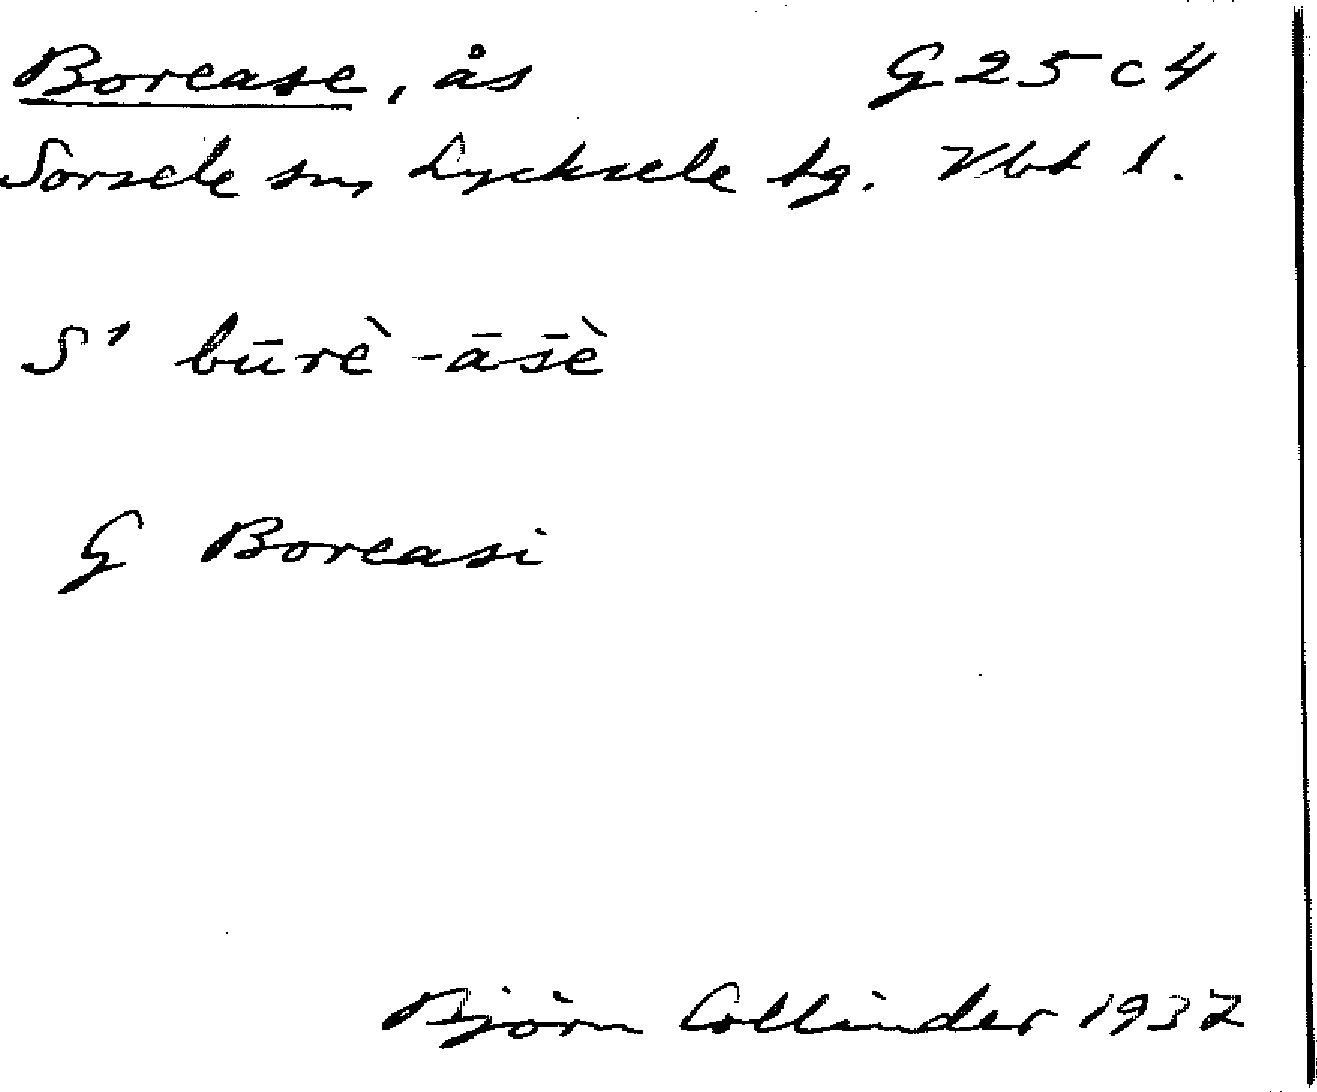 Borease, ås G 25 c 4
Sorsele sn, Lycksele tg. Vbt l.
S' būrè -ās̄è
G Boreasi
Björn Collinder 1937